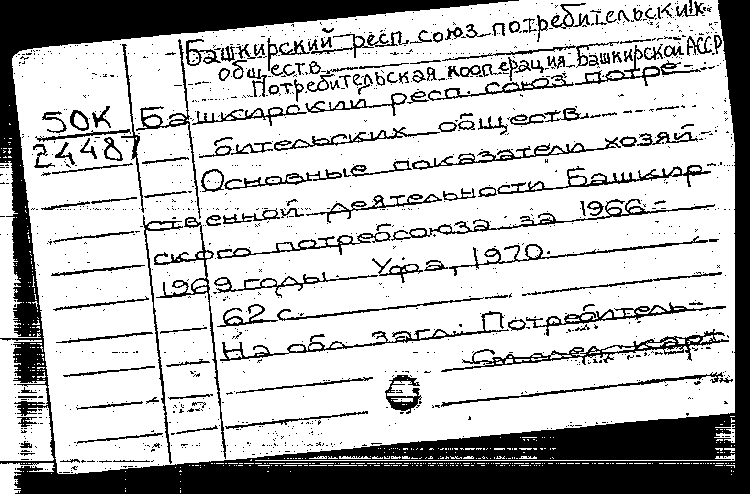 Башкирский респ. союз потребительских
обществ
Потребительская кооперация Башкирской АССР
50К
24487
Башкирский респ. союз потре-
бительских обществ.
Основные показатели хозяй-
ственной деятельности Башкир-
ского потребсоюза за 1966-
1969 годы. Уфа, 1970.
62 с.
На обл. загл.: Потребитель-